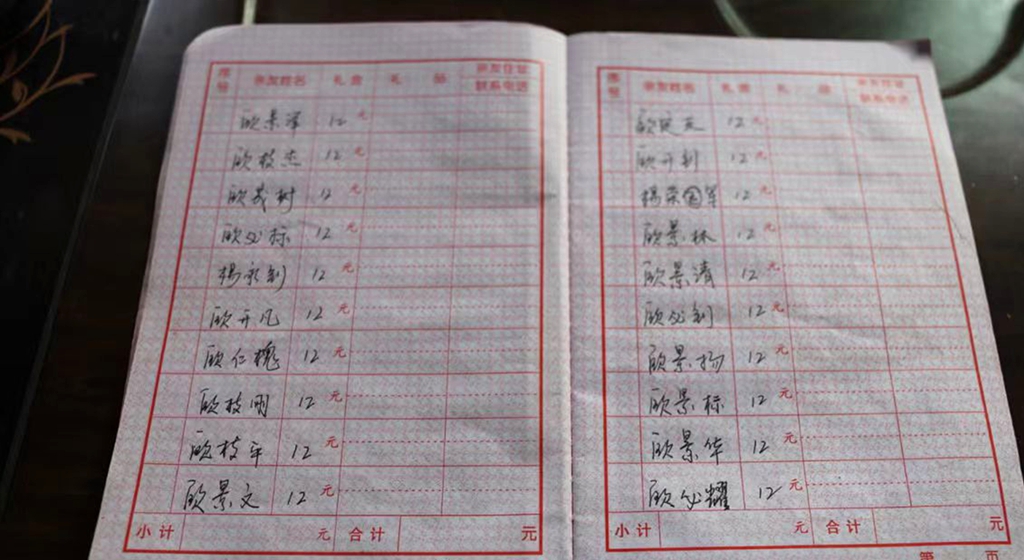 序号 亲友姓名 礼金 礼品 亲友住址 联系电话
欧景军 12元
欧枝杰 12元
欧茂树 12元
欧必标 12元
杨永利 12元
欧开凡 12元
欧仁槐 12元
欧枝明 12元
欧枝平 12元
欧景文 12元
小计 元 合计 元
序号 亲友姓名 礼金 礼品 亲友住址 联系电话
12元
欧开利 12元
杨荣国军 12元
欧景林 12元
欧景清 12元
欧必利 12元
欧景扬 12元
欧景标 12元
欧景华 12元
欧必耀 12元
小计 元 合计 元
第 页